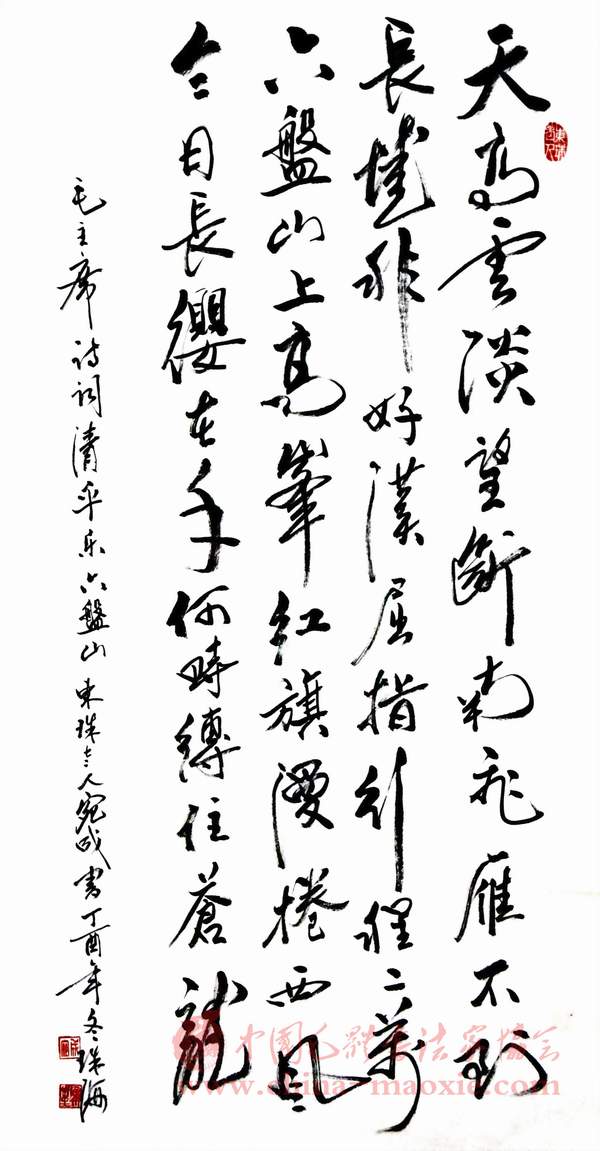 天高雲淡望斷南飛雁不到
長城非好漢屈指行程二萬
六盤山上高峯紅旗漫捲西風
今日長纓在手何時縛住蒼龍
毛主席诗词清平乐六盤山 東珠老人宛成書丁酉年冬珠海
中國毛體書法家協會
www.china-maoxie.com